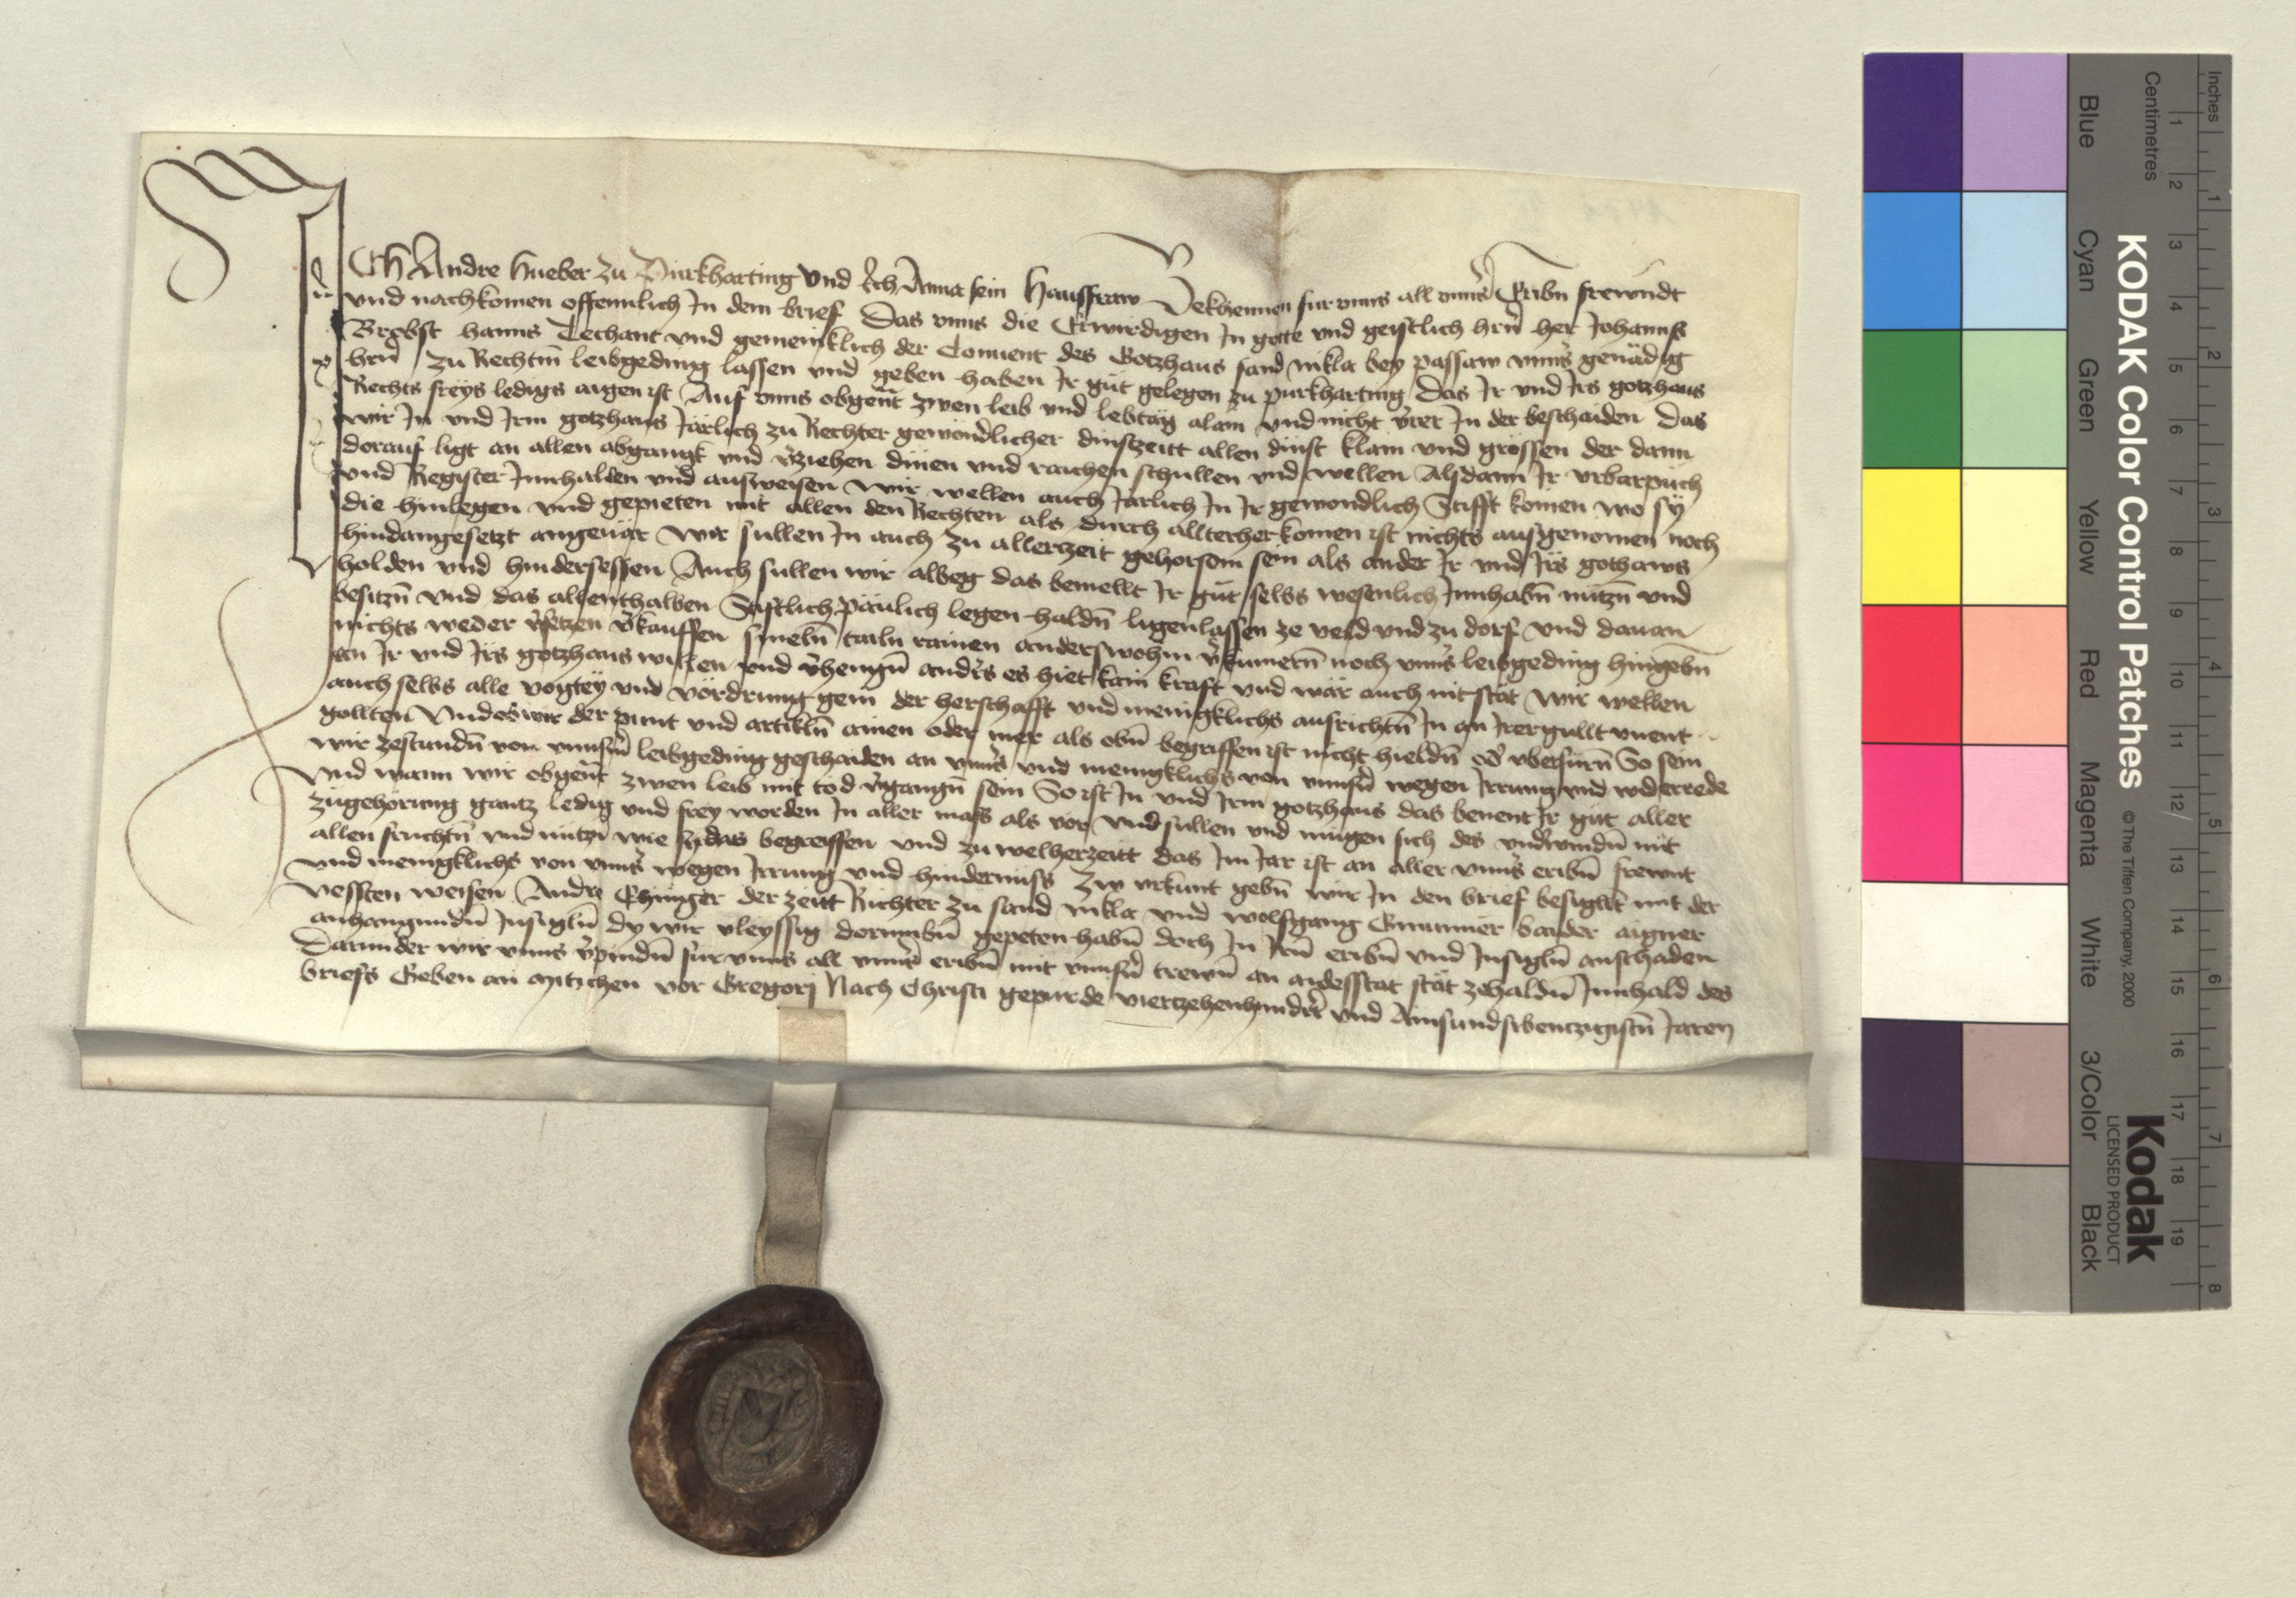 ICh Andre Hueber zu Purkharting Und Ich Anna sein Hausfraw Vekhennen fur vnns all vnnser Eribn frewndt
vnd nachkomen offennlich In dem brief Das vnns die Erwirdigen In gotte vnd geistlich hrn her Johanns
Brobst hanns Techant vnd gemeinklich der Conuent des Gotzhaus sand nikla bey passaw vnnser genädig
hrn zu Rechtm leibgeding lassen vnd geben haben Ir gut gelegen zu purkharting Das Ir vnd Irs gotzhaus
Rechts freys ledigs aigen ist Auf vnns obgent zwen leib vnd lebtag alain vnd nicht verer In der beschaiden Das
wir In vnd Irm gotzhaus Järlich zu Rechter gewondlicher dinstzeitt allen dinst klain vnd grossen der dann
dorauf ligt an allen abgangk vnd verziehen dinen vnd raichen schullen vnd wellen Alsdann Ir vrbarpuch
vnd Register Innhalden vnd ausweisen Wir wellen auch Järlich In Ir gewondlich Stifft komen wo sy
die hinlegen vnd gepieten mit allen den Rechten als durch allterherkomen ist nichts ausgenomen noch
hindangesetzt angeuär Wir sullen In auch zu allerzeit gehorsam sein als ander Ir vnd Irs gothaws
holden vnd hindersessen Auch sullen wir albeg das bemellt Ir gut selbs wesenlich Innhabn nützn vnd
besitzn vnd das allenthalben Stiftlich päulich legen haldn ligenlassen ze veld vnd zu dorf vnd dauan
nichts weder versetzen verkauffen smelen tailn rainen anderswohin verkumern noch vnnser leibgeding hingebn
an Ir vnd Irs gotzhaus willen vnd verhengn anders es hiet kain kraft vnd wär auch nit stät Wir wellen
auch selbs alle vogtey vnd vördrung gem der herschafft vnd menigklichs ausrichtn In an Irer gullt vnent
gollten Vnd ob wir der punt vnd artikln ainen oder mer als obn begriffen ist nicht hieldn oder vberfurn So sein
wir zestundn von vnnserm leibgeding geschaiden an vnnser vnd menigklichs von vnnsern wegen Irrung vnd widerrede
Vnd wann wir obgent zwen leib mit tod vergangn sein So ist In vnd Irm gotzhaus das benent Ir gut aller
zugehörung gantz ledig vnd frey worden In aller mass als vor Vnd sullen vnd mugen sich des vnderwindn mit
allen fruchtn vnd nützn wie sy das begreiffen vnd zu welherzeitt das Im Jar ist an aller vnnser eribn frewnt
vnd menigklichs von vnns wegen Irrung vnd hindernuss Zw vrkunt gebn wir In den brief besiglt mit der
vessten weisen Andre Ehinger der zeitt Richter zu sand nikla vnd wolfgang Grunner baider aigner
anhangundn Insigln dy wir vleyssig dorumbn gepeten habn doch In Irn eribn vnd Insigln anschaden
Darunder wir vnns verpindn für vnns all vnnser eribn mit vnnsern trewn an aidesstat stät zehaldn Innhald des
briefs Geben an Mitichen vor Gregorj Nach Christi gepurde viertzehenhundert vnd Ainsundsibentzigistn Jaren
KODAK Color Control Patches © The Tiffen Company, 2000
Kodak
LICENSED PRODUCT
Blue Cyan Green Yellow Red Magenta White 3/Color Black
Inches 1 2 3 4 5 6 7 8
Centimetres 1 2 3 4 5 6 7 8 9 10 11 12 13 14 15 16 17 18 19